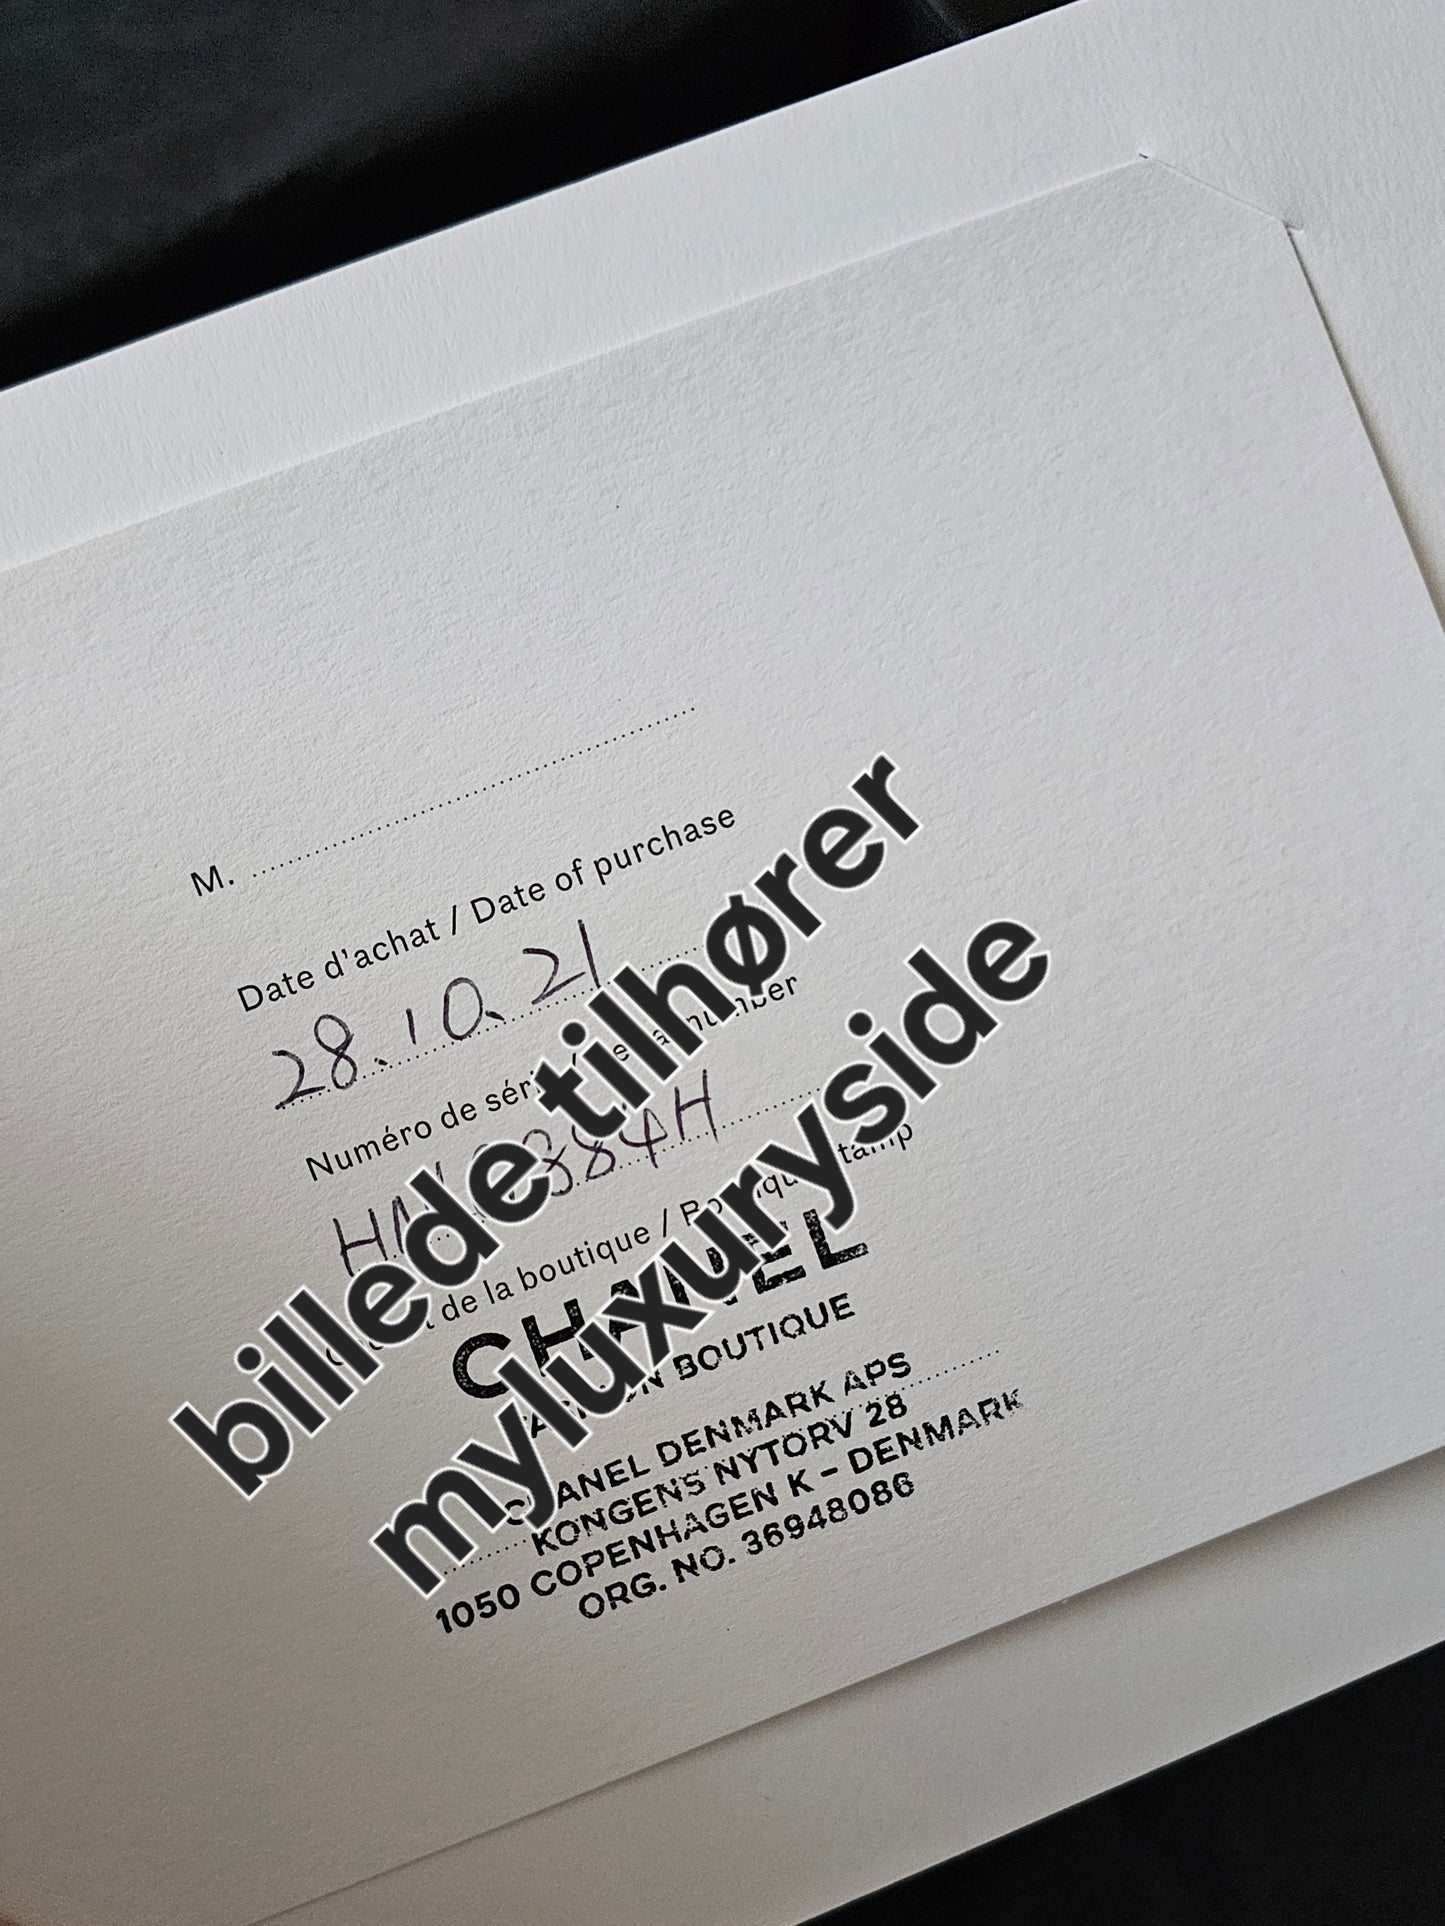 M.
Date d'achat / Date of purchase
28.10.21
Numéro de number
884H
de la boutique /
CHANEL
BOUTIQUE
CHANEL DENMARK APS
KONGENS NYTORV 28
1050 COPENHAGEN K - DENMARK
ORG. NO. 36948086
billede tilhører
myluxuryside